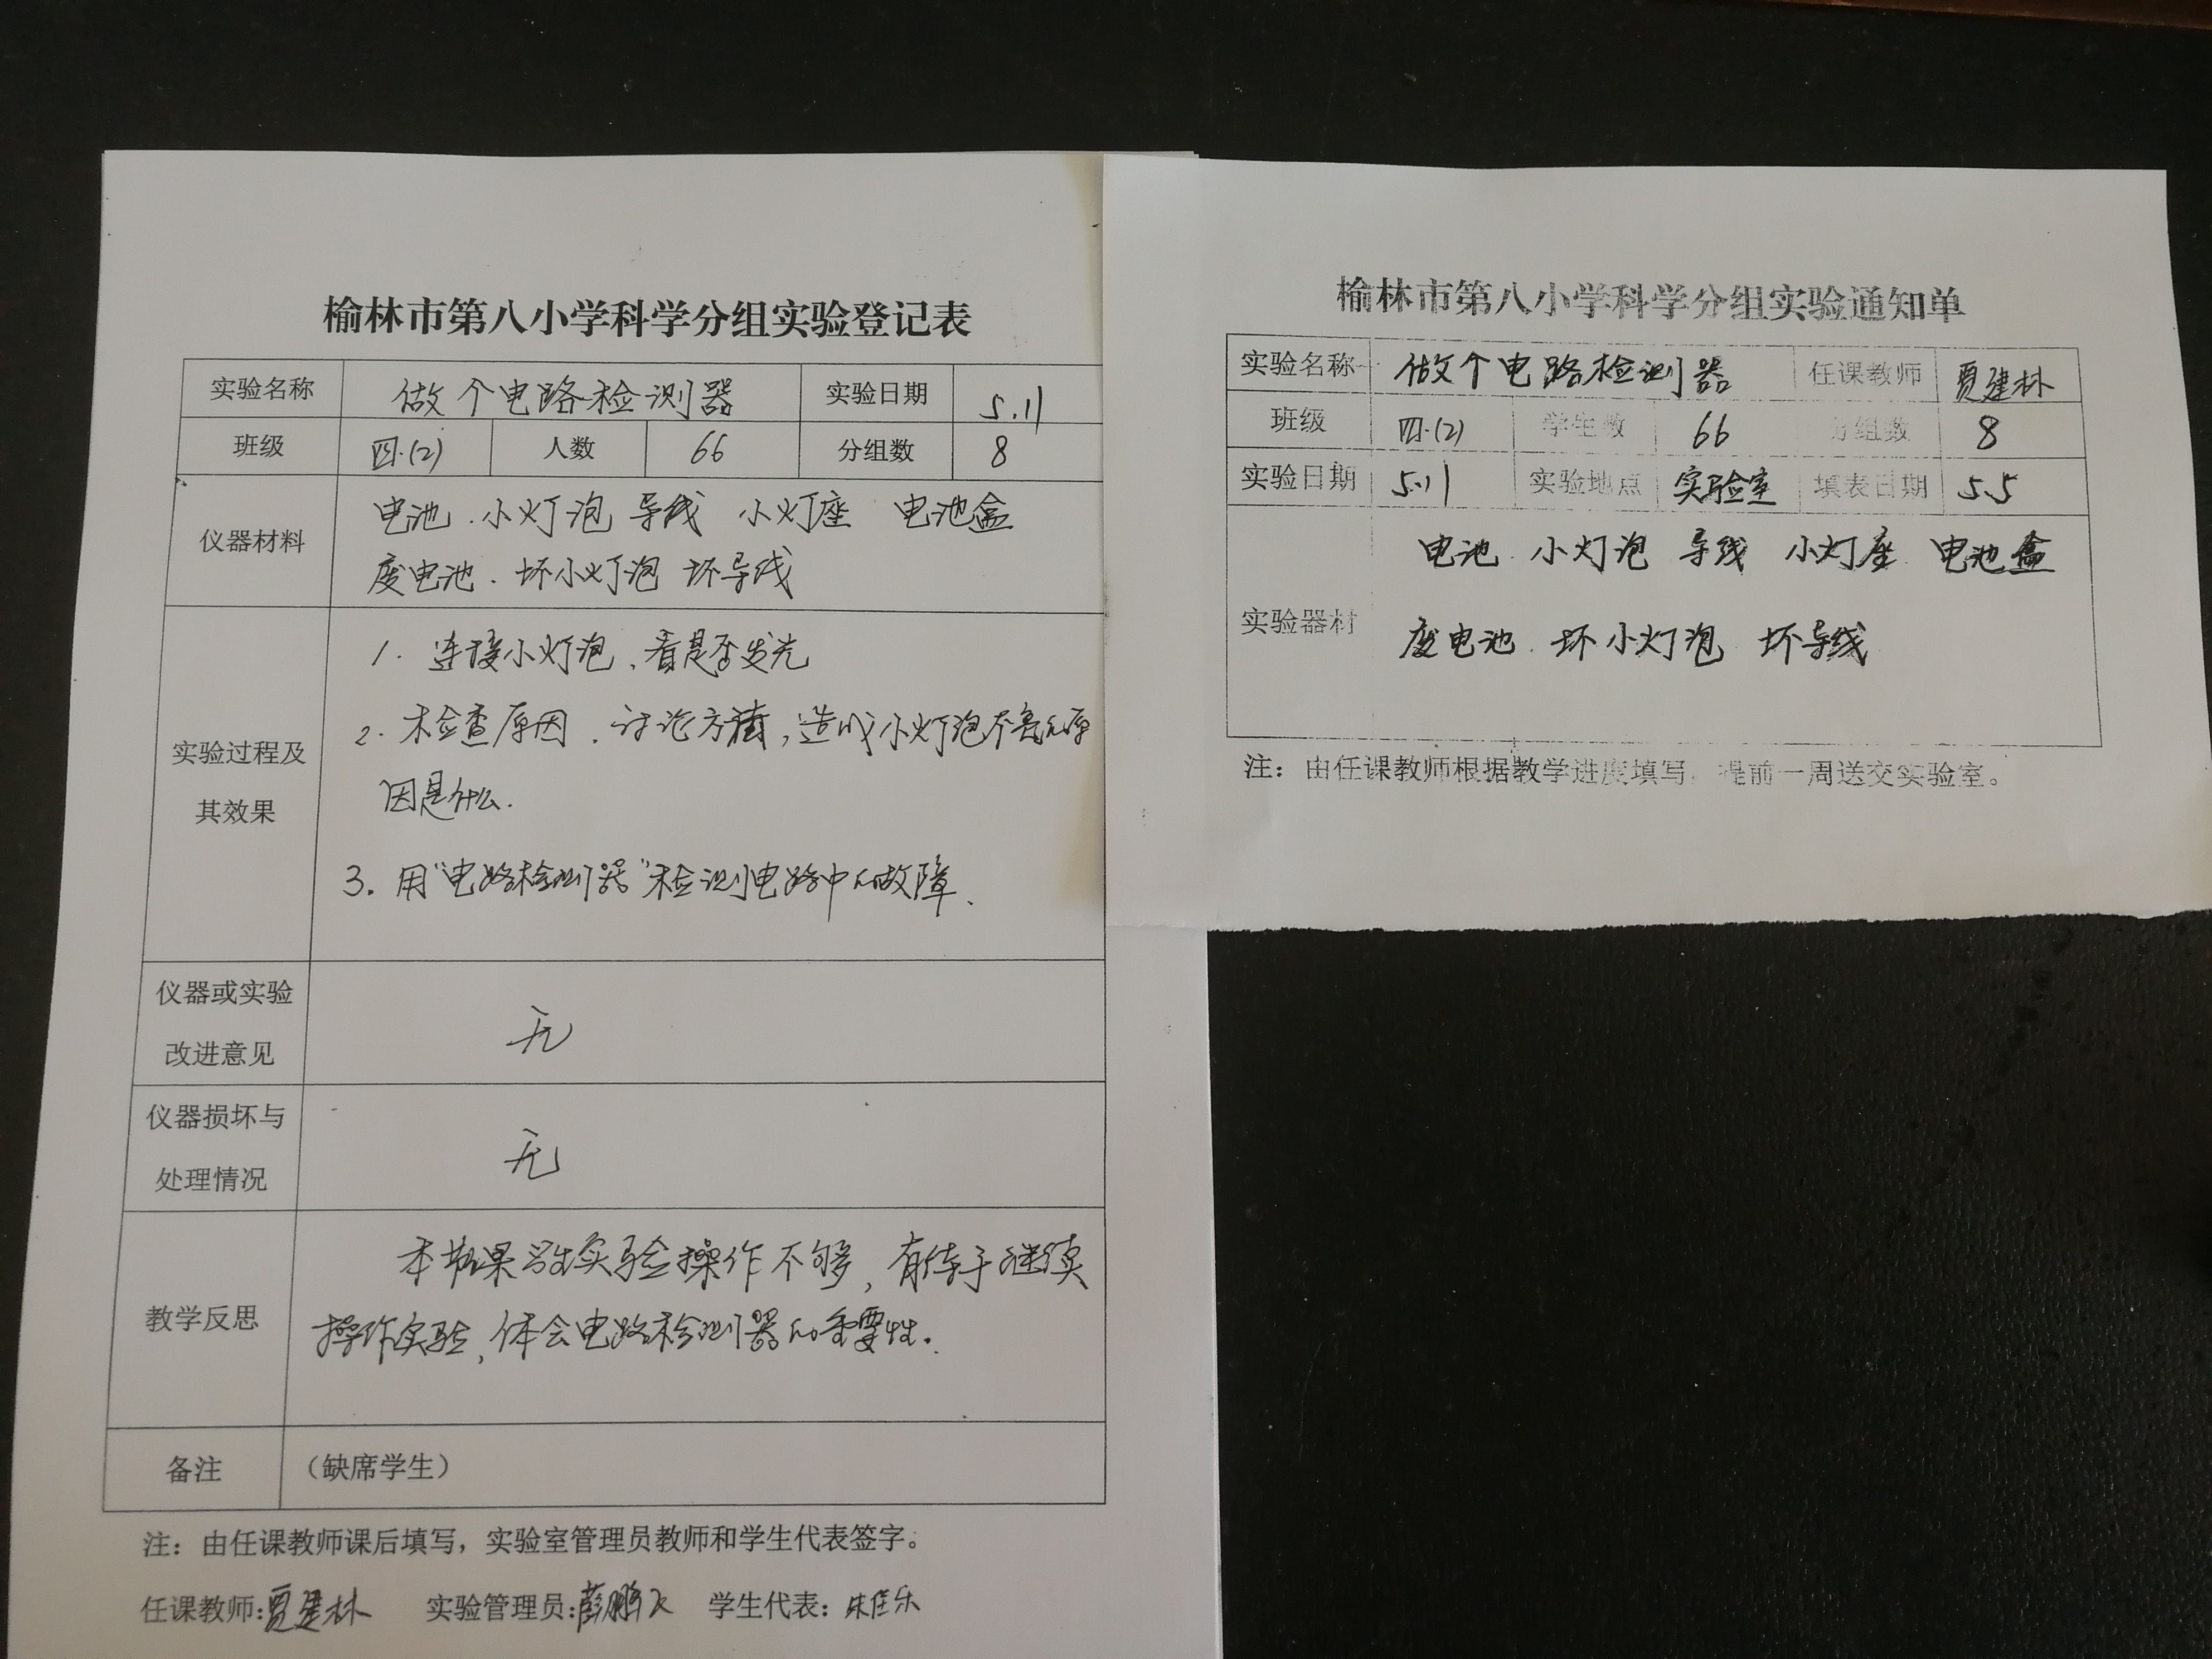 榆林市第八小学科学分组实验登记表
实验名称 做个电路检测器 实验日期 5.11
班级 四.(2) 人数 66 分组数 8
仪器材料
电池.小灯泡 导线 小灯座 电池盒
废电池.坏小灯泡 坏导线
实验过程及
其效果
1. 连接小灯泡,看是否发光
2. 检查原因.讨论方 ,造成小灯泡不亮 原
因是什么.
3. 用“电路检测器”检测电路中的故障.
仪器或实验
改进意见
无
仪器损坏与
处理情况
无
教学反思
本节课学生实验操作不够,有待于继续
操作实验,体会电路检测器的重要性.
备注 (缺席学生)
注:由任课教师课后填写,实验室管理员教师和学生代表签字。
任课教师:贾建林 实验管理员:薛鹏飞 学生代表:朱佳乐
榆林市第八小学科学分组实验通知单
实验名称 做个电路检测器 任课教师 贾建林
班级 四.(2) 学生数 66 分组数 8
实验日期 5.11 实验地点 实验室 填表日期 5.5
实验器材
电池.小灯泡 导线 小灯座 电池盒
废电池.坏小灯泡 坏导线
注:由任课教师根据教学进度填写,提前一周送交实验室。